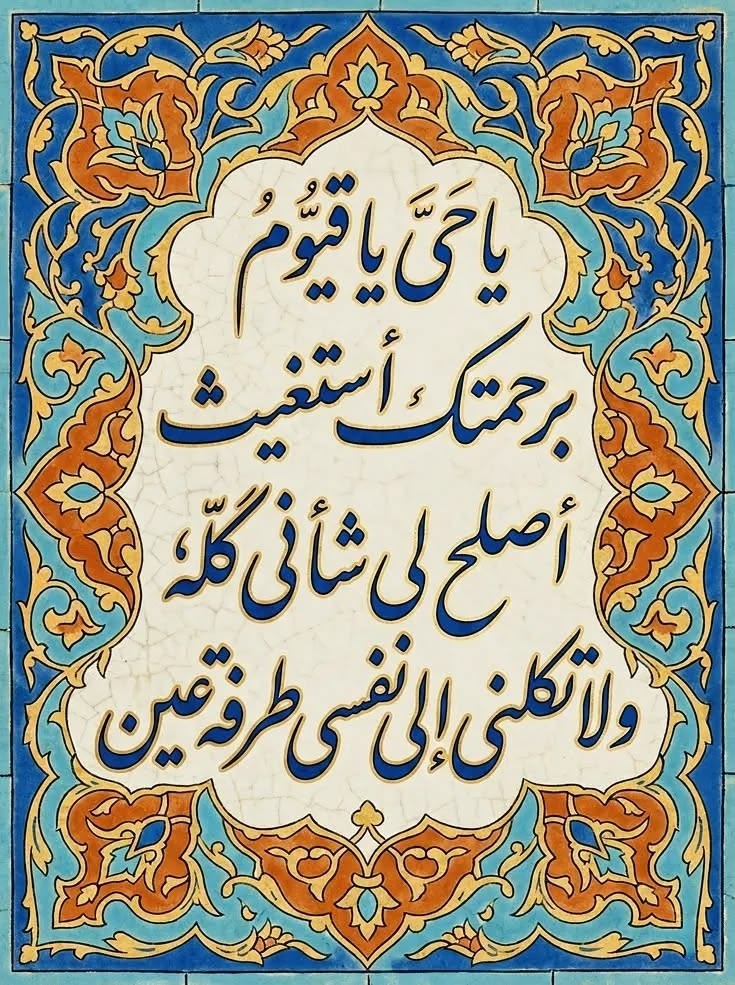 يا حَىَّ يا قيُّومُ
برحمتك أستغيث
أصلح لى شأنى كلّه،
ولا تكلنى إلى نفسى طرفة عين